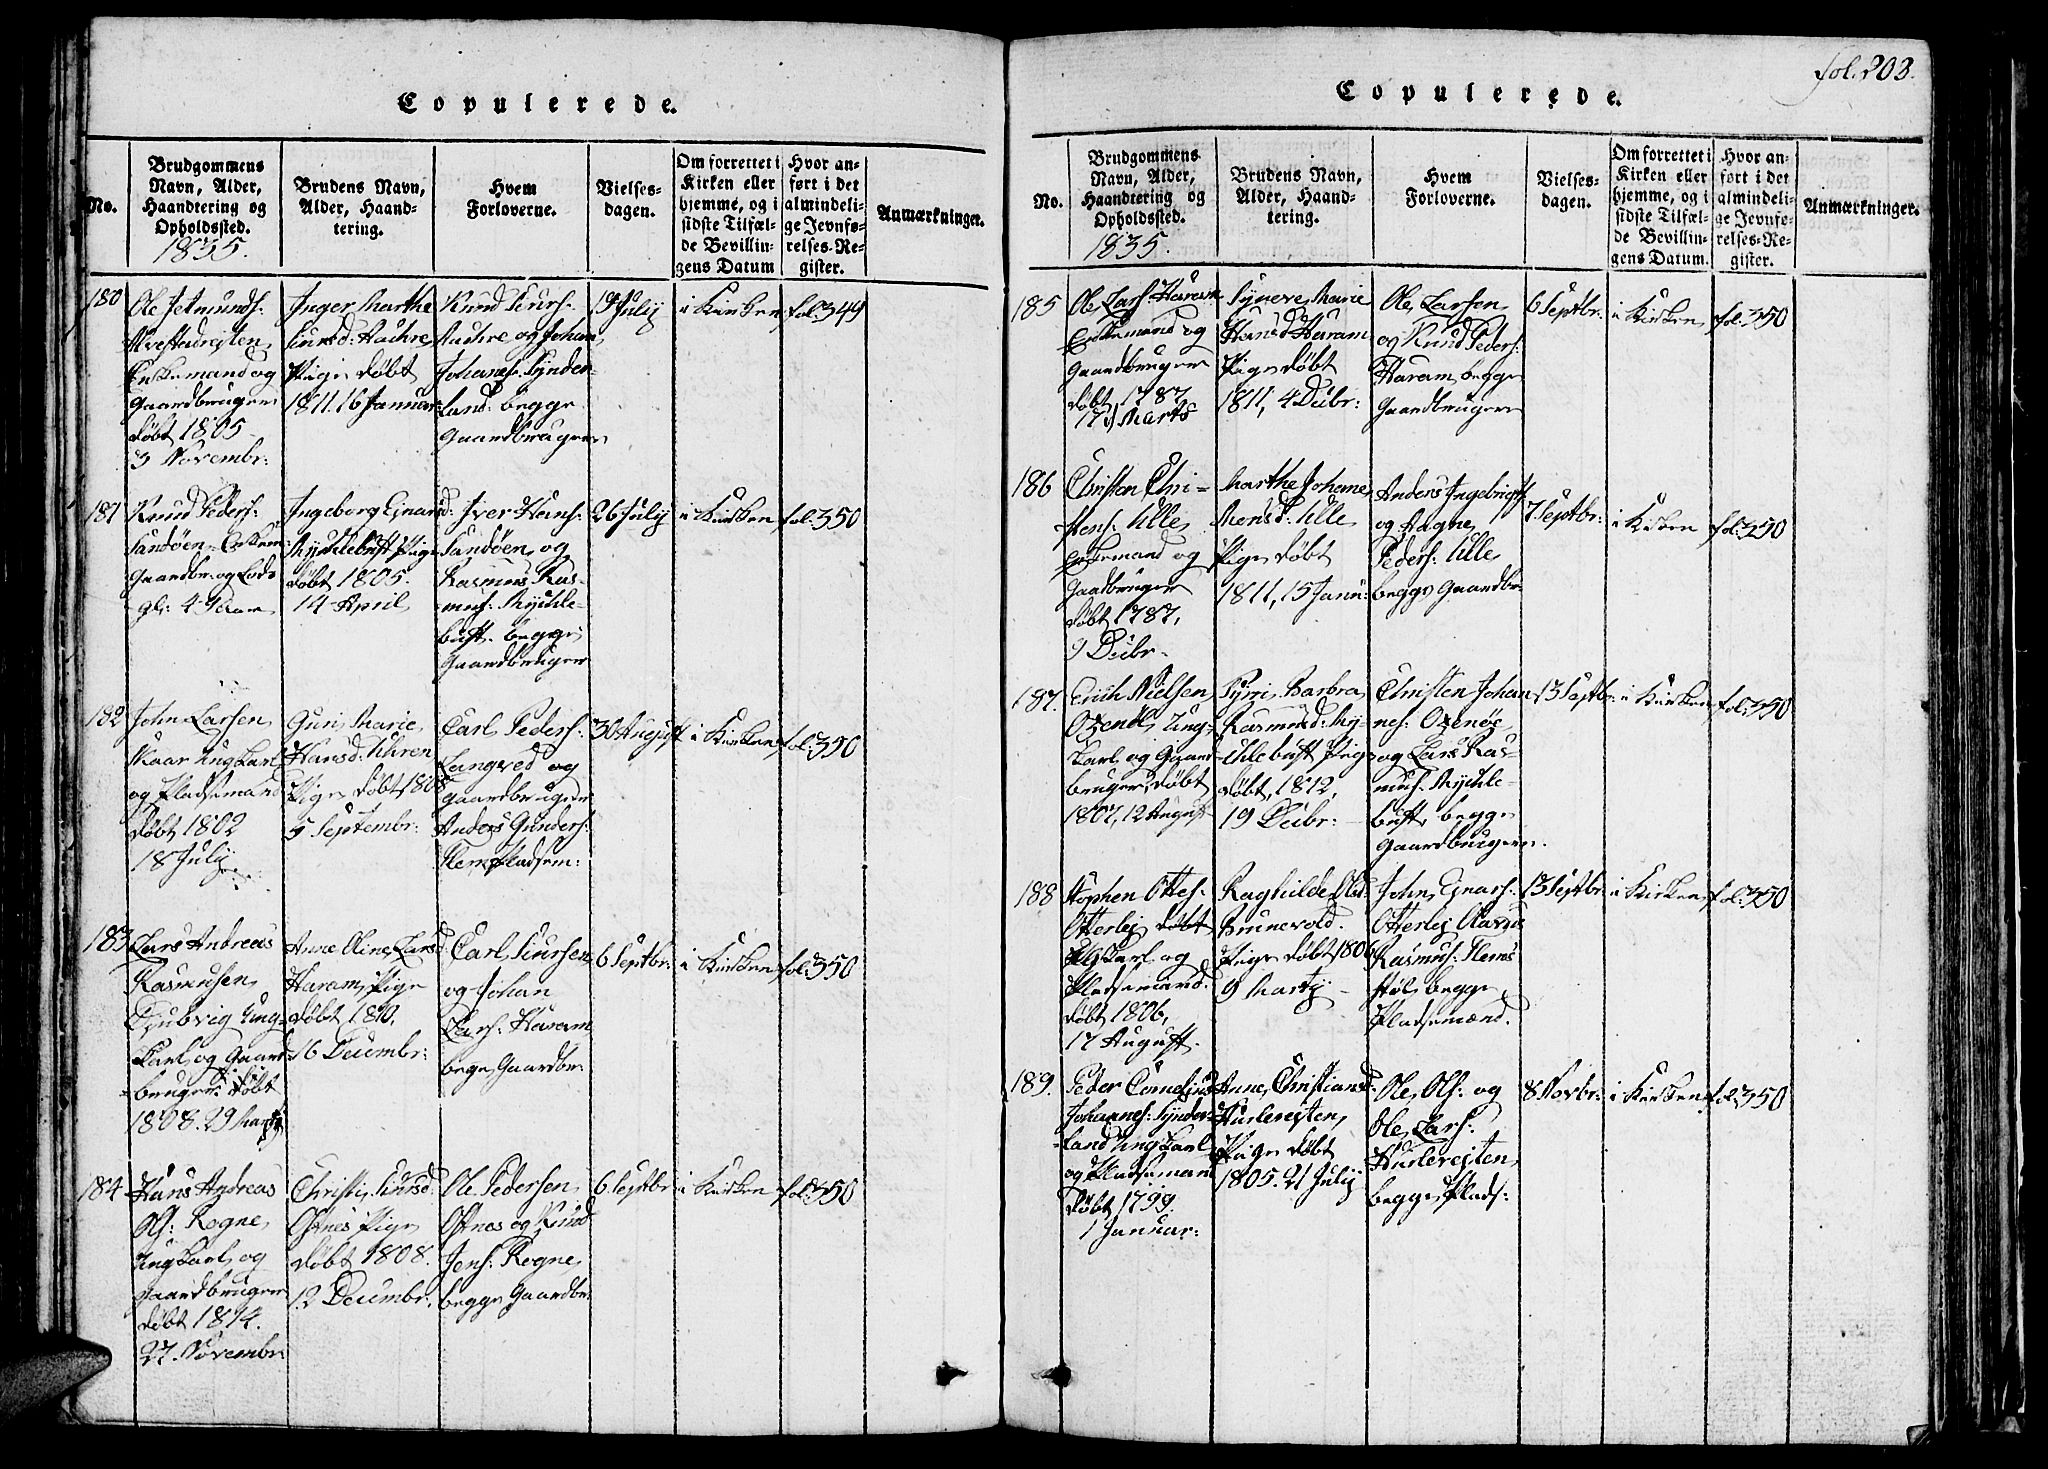 Copulerede.
No.
Brudgommens
Navn, Alder,
Haandtering og
Opholdssted.
1835.
Brudens Navn,
Alder, Haand-
tering.
Hvem
Forloverne.
Vielses-
dagen.
Om forrettet i
Kirken eller
hjemme, og i
sidste Tilfæl-
de Bevillin-
gens Datum
Hvor an-
ført i det
almindeli-
ge Jevnfø-
relses-Re-
gister.
Anmærkninger.
180
Ole Jetmunds:
Enkemand og
Gaardbruger
døbt 1805
3 Novembr:
Inger Marthe
Pige døbt
1811. 16 Januar
Knud
og Johan
Johanes: Synder-
land begge
Gaardbrugere
19 July
i Kirken
fol: 349
181
Knud Peders:
Sandøen Enkem:
Gaardbr: og
Ingeborg
Mychlebust Pige
døbt 1805.
14 April
Iver Hans:
Sandøen og
Rasmus Ras-
mus: Mychle-
bust begge
Gaardbruger
26 July
i Kirken
fol: 350
182
John Larsen
Skaar Ungkarl
og Pladsemand
døbt 1802
18 July
Guri Marie
Hansd: Uhren
Pige døbt 1808
5 Septembr:
Carl Peders:
Longved og
Gaardbruger
Anders Gunders:
Hem Pladsem:
30 August
i Kirken
fol: 350
183
Lars Andreas
Rasmusen
Djubvig Ung-
karl og Gaard
bruger døbt
1808. 29
Anne Oline Larsd:
Haram Pige
døbt 1810,
16 Decembr:
Carl Siursen
og Johan
Lars: Haram
begge Gaardbr:
6 Septbr:
i Kirken
fol: 350
184
Hans Andreas
Ols: Rogne
Ungkarl og
Gaardbruger
døbt 1814.
27. Novembr:
Christi Siursd:
Østnes Pige
døbt 1808.
12 Decembr:
Ole Pedersen
Østnes og Knud
Jens: Rogne
begge Gaardbr:
6 Septbr
i Kirken
fol: 350
fol. 203.
Copulerede.
No.
Brudgommens
Navn, Alder,
Haandtering og
Opholdssted.
1835.
Brudens Navn,
Alder, Haand-
tering.
Hvem
Forloverne.
Vielses-
dagen.
Om forrettet i
Kirken eller
hjemme, og i
sidste Tilfæl-
de Bevillin-
gens Datum.
Hvor an-
ført i det
almindeli-
ge Jevnfø-
relses-Re-
gister.
Anmærkninger.
185
Ole Lars: Haram
Enkemand og
Gaardbruger
døbt 1787
17 Marts
Synneve Marie
Hansd Haram
Pige døbt
1811, 4 Debr:
Ole Larsen
og Knud Peders:
Haram begge
Gaardbrugere
6 Septbr:
i Kirken
fol: 350
186
Christen Chri-
stens: Ulle
Enkemand og
Gaardbruger
døbt 1787,
9 Debr.
Marthe Johanne
Monsd: Ulle
Pige døbt
1811, 15 Janu:
Anders Ingebrigts
og Aagne
Peders: Ulle
begge Gaardbr:
7 Septbr:
i Kirken
fol: 350
187.
Erich Nielsen
Ung-
karl og Gaard
bruger, døbt
1807, 12 August
Syri Barbra
Rasmusd: My-
chlebust Pige
døbt, 1812,
19 Debr:
Christen Johan
nes:
og Lars Ras-
mus: Mychle-
bust begge
Gaardbrugere.
13 Septbr:
i Kirken
fol: 350
188
Stephen Ottes:
Otterlej døbt
Ungkarl og
Pladsemand.
døbt 1806,
17 August.
Raghilde Olsd:
Brunevold.
Pige døbt 1806
9 Martz
John Einars:
Otterlej
Rasmus: Hems
støl begge
Pladsemænd.
13 Septbr:
i Kirken
fol: 350
189.
Peder Cornelius
Johannes: Synder-
land Ungkarl
og Pladsemand
døbt 1799.
1 Januar:
Anne Christiansd:
Hurlerejten
Pige døbt
1805. 21 July
Ole Ols: og
Ole Lars:
Hurlerejten
begge Plads:
8 Novbr:
i Kirken
fol: 350